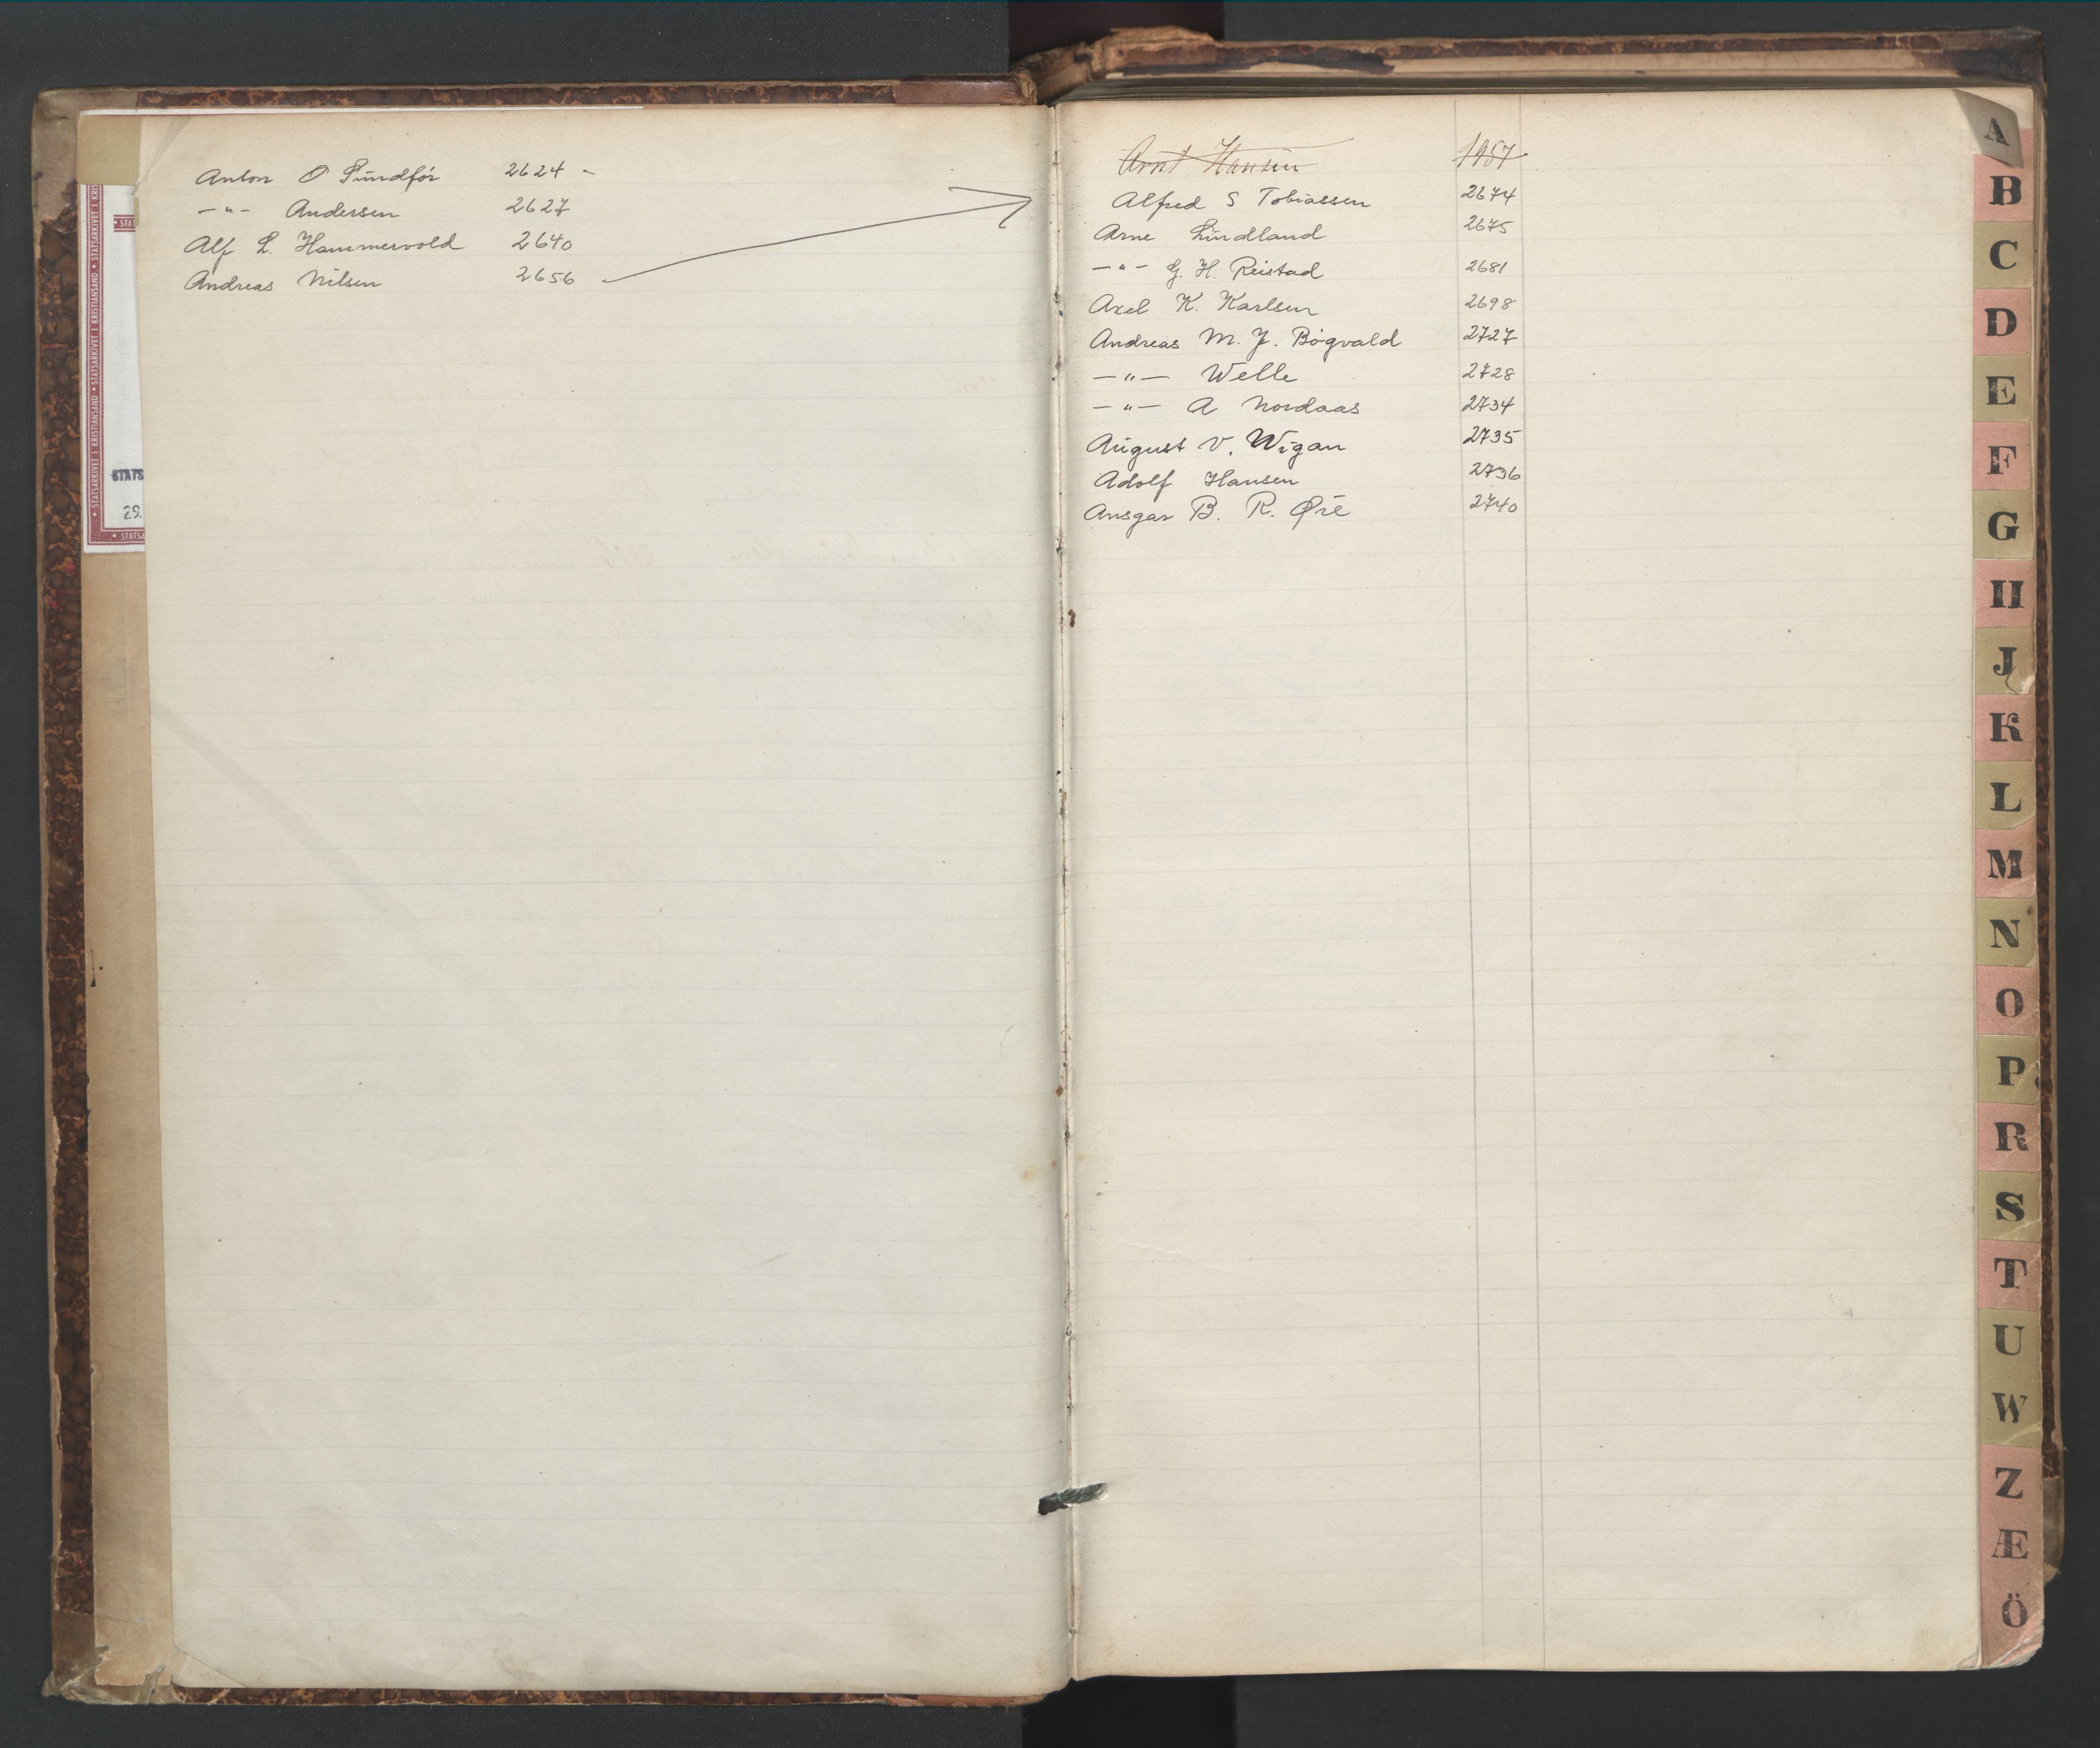 Anton O Sundfør 2624 -
-"- Andersen 2627
Alf L. Hammervold 2640
Andreas Nilsen 2656
STATSARKIVET I KRISTIANSAND • STATSARKIVET I KRISTIANSAND
STATS
29.
Arnt Hansen 1957
Alfred S Tobiassen 2674
Arne Lindland 2675
-"- G. H. Reistad 2681
Axel K. Karlsen 2698
Andreas M. J. Bøgvald 2727
-"- Welle 2728
-"- A Nordaas 2734
August V. Wigan 2735
Adolf Hansen 2736
Ansgar B. R. Øie 2740
A
B
C
D
E
F
G
H
J
K
L
M
N
O
P
R
S
T
U
W
Z
Æ
Ö